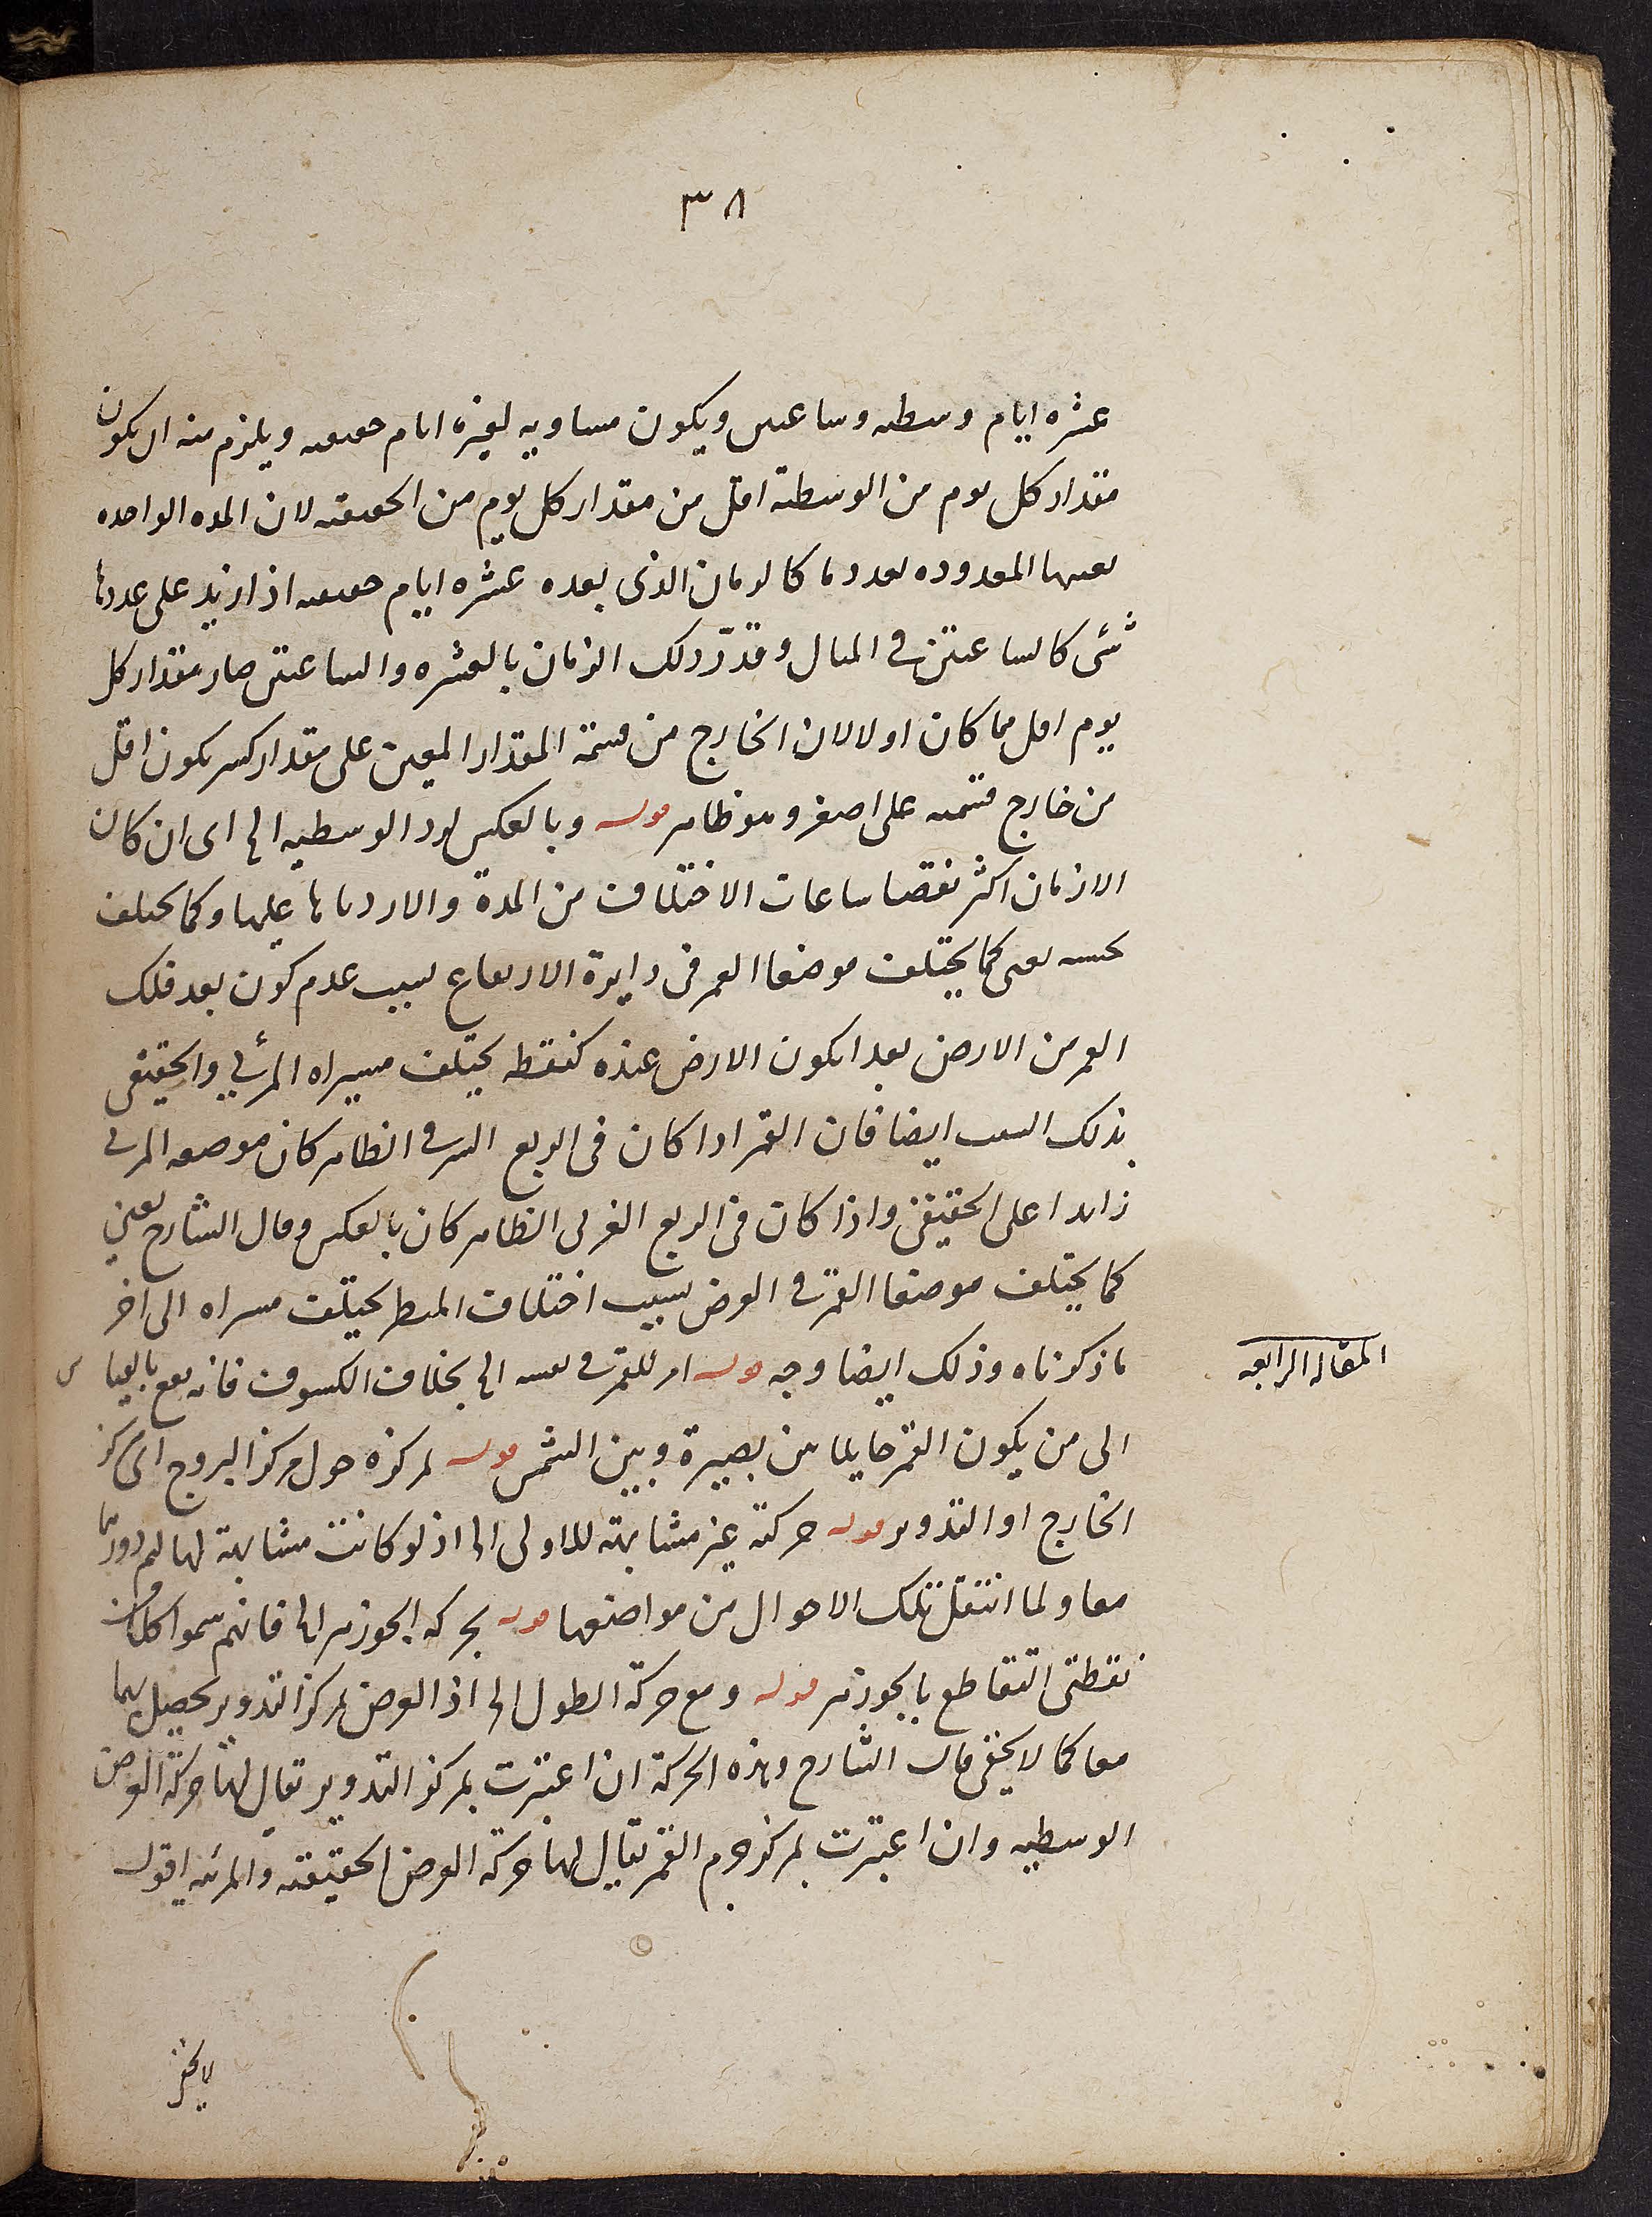 ٣٨
عشره ايام وسطيه وساعتين ويكون مساويه لعشرة ايام حقيقيه ويلزم منه ان يكون
مقدار كل يوم من الوسطية اقل من مقدار كل يوم من الحقيقيه لان المده الواحده
بعينها المعدوده بعدد ما كالزمان الذى بعده عشره ايام حقيقيه اذا زيد على عددها
شئ كالساعتين فى المثال وقدّر ذلك الزمان بالعشره والساعتين صار مقدار كل
يوم اقل مما كان اولا لان الخارج من قسمة المقدار المعين على مقدار كسر يكون اقل
من خارج قسمته على اصغر وهو ظاهر قوله وبالعكس لرد الوسطيه الخ اى ان كان
الازمان اكثر نقصنا ساعات الاختلاف من المدة والا زدناها عليها وكما يختلف
بحسبه يعنى كما يختلف موضعا القمر فى دايرة الارتفاع بسبب عدم كون بعد فلك
القمر من الارض بعدا يكون الارض عنده كنقطه يختلف مسيراه المرئى والحقيقى
بذلك السبب ايضا فان القمر اذا كان فى الربع الشرقى الظاهر كان موضعه المرئى
زايدا على الحقيقى واذا كان فى الربع الغربى الظاهر كان بالعكس وقال الشارح يعنى
كما يختلف موضعا القمر فى العرض بسبب اختلاف المنظر يختلف مسيراه الى اخر
ما ذكرناه وذلك ايضا وجه قوله امر للقمر فى نفسه الخ بخلاف الكسوف فانه يقع بالقياس
الى من يكون القمر حايلا من بصيرة وبين الشمس قوله لمركزه حول مركز البروج اى مركز
الخارج او التدوير قوله حركته غير مشابهته للاولى الخ اذ لو كانت مشابهة لها لتم دورتا
معا ولما انتقل تلك الاحوال من مواضعها قوله بحركه الجوزهر الخ فانهم سموا كلا من
نقطتى التقاطع بالجوزهر قوله ومع حركة الطول الخ اذ العرض لمركز التدوير يحصل بهما
معا كما لا يخفى قال الشارح وهذه الحركة ان اعتبرت بمركز التدوير يقال لها حركة العرض
الوسطيه وان اعتبرت بمركز جرم القمر يقال لها حركة العرض الحقيقيه والمرئيه اقول
المقاله الرابعه
لا يخفى